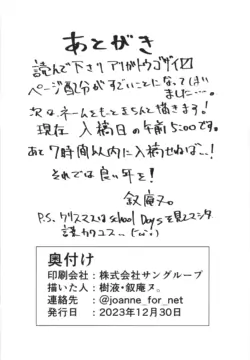 あとがき
読んで下さり アリがトウゴザイ〼
ページ配分がすごいことになってしまい
ました…。
次はネームをもっときちんと描きます!
現在 入稿日の午前5:00です。
あと7時間以内に入稿せねば…!
それでは良い年を!
叙庵ヌ。
P.S. クリスマスはSchool Daysを見てマシタ
奥付け
印刷会社:株式会社サングループ
描いた人:樹液・叙庵ヌ。
連絡先 :@joanne_for_net
発行日 :2023年12月30日